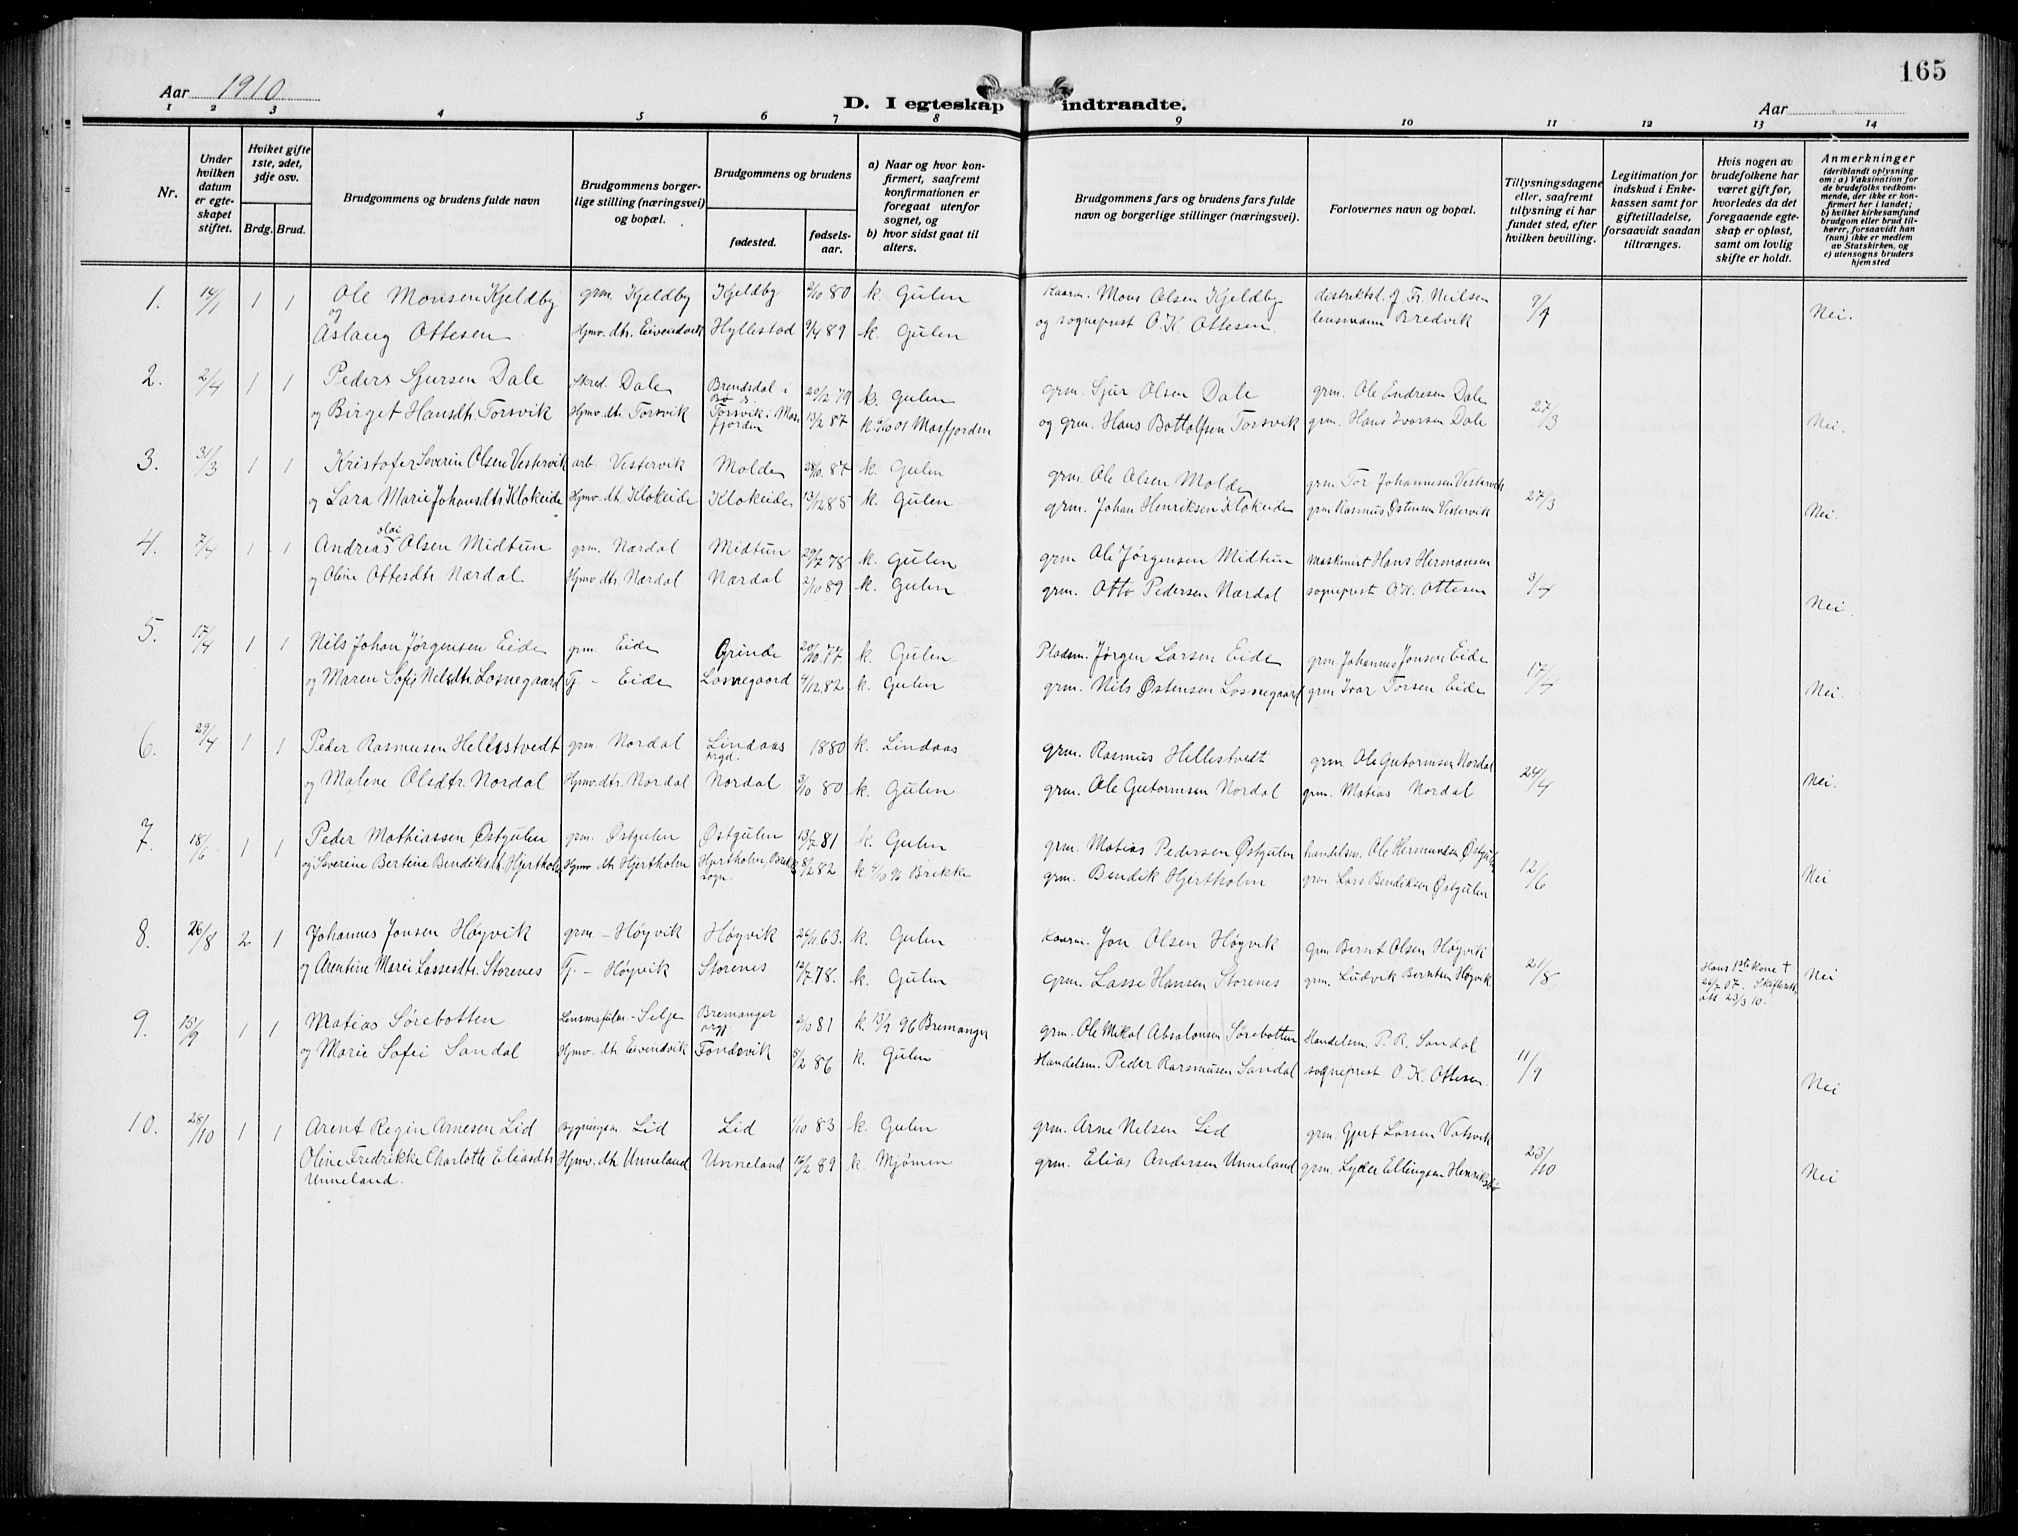 165
Aar 1910
D. I egteskap indtraadte.
Aar
1 2 3 4 5 6 7 8 9 10 11 12 13 14
Nr.
Under hvilken datum er egteskapet stiftet.
Hviket gifte 1ste, 2det, 3dje osv.
Brdg. Brud.
Brudgommens og brudens fulde navn
Brudgommens borgerlige stilling (næringsvei) og bopæl.
Brudgommens og brudens
fødested.
fødselsaar.
a) Naar og hvor konfirmert, saafremt konfirmationen er foregaat utenfor sognet, og
b) hvor sidst gaat til alters.
Brudgommens fars og brudens fars fulde navn og borgerlige stillinger (næringsvei).
Forlovernes navn og bopæl.
Tillysningsdagene eller, saafremt tillysning ei har fundet sted, efter hvilken bevilling.
Legitimation for indskud i Enkekassen samt for giftetilladelse, forsaavidt saadan tiltrænges.
Hvis nogen av brudefolkene har været gift før, hvorledes da det foregaaende egteskap er opløst, samt om lovlig skifte er holdt.
Anmerkninger (deriblandt oplysning om: a) Vaksination for de brudefolks vedkommende, der ikke er konfirmert her i landet; b) hvilket kirkesamfund brudgom eller brud tilhører, forsaavidt han (hun) ikke er medlem av Statskirken, og c) utensogns bruders hjemsted
1. 14/1 1 1 Ole Monsen Kjeldby grm. Kjeldby Kjeldby 2/10 80 k. Gulen Kaarm. Mons Olsen Kjeldby distriktsl. J Fr. Neilsen 9/1 Nei.
og Aslaug Ottesen Hjmv. dtr. Eivendvik Hyllestad 9/4 89 k. Gulen og sogneprest O. K. Ottesen lensmann Bredvik
2. 2/4 1 1 Peders Sjursen Dale Skred. Dale Brendsdal i Bø s. 29/12 79 k. Gulen grm. Sjur Olsen Dale grm. Ole Endresen Dale 27/3 Nei.
og Birget Hansdtr Torsvik Hjmv. dtr. Torsvik Torsvik i Masfjorden 13/2 87 k. Masfjorden og grm. Hans Bottolfsen Torsvik grm. Hans Ivarsen Dale
3. 31/3 1 1 Kristofer Severin Olsen Vestervik arb. Vestervik Molde 28/10 87 k. Gulen grm. Ole Olsen Molde grm. Tor Johannesen Vestervik 27/3 Nei.
og Lara Marie Johansdtr Klokeide Hjmv. dt. Klokeide Klokeide 13/12 85 k. Gulen grm. Johan Henriksen Klokeide grm Rasmus Østensen Vestervik
4. 7/4 1 1 Andreas Olai Olsen Midtun grm. Nærdal Midtun 29/7 78 k. Gulen grm Ole Jørgensen Midtun Maskinist Hans Hermansen 3/4 Nei.
og Oline Ottesdtr Nærdal Hjmv dtr Nærdal Nærdal 2/10 89 k. Gulen grm. Otto Pedersen Nærdal sogneprest O. K. Ottesen
5. 17/4 1 1 Nils Johan Jørgensen Eide grm. Eide Grinde 20/10 77 k. Gulen Pladsm. Jørgen Larsen Eide grm Johannes Jonsen Eide 17/4 Nei.
og Maren Sofie Nilsdtr Losnegaard Tj - Eide Losnegaard 4/12 82 k. Gulen grm. Nils Østensen Losnegaard grm Ivar Torsen Eide
6. 29/4 1 1 Peder Rasmusen Hellestvedt grm. Nordal Lindaas prgd. 1880 k. Lindaas grm. Rasmus Hellestvedt grm. Ole Gutormsen Nordal 24/4 Nei.
og Malene Olsdtr. Nordal Hjmv. dtr. Nordal Nordal 3/10 80 k. Gulen grm. Ole Gutormsen Nordal grm. Matias Nordal
7. 18/6 1 1 Peder Mathiassen Østgulen grm. Østgulen Østgulen 13/7 81 k. Gulen grm. Matias Pedersen Østgulen handelsm. Ole Hermundsen Østgulen 12/6 Nei
og Severine Bertine Bendiksdt. Hjertholm Hjmv dtr Hjertholm Hjertholm, Brekke Sogn. 8/2 82 k 4/10 96 Brekke grm. Bendik Hjertholm grm Lars Bendiksen Østgulen
8. 26/8 2 1 Johannes Jonsen Høyvik grm - Høyvik Høyvik 24/11 63. k. Gulen Kaarm. Jon Olsen Høyvik grm Bernt Olsen Høyvik 21/8 Hans 1ste Kone † 26/2 07. Skifteret. att 23/3 10. Nei
og Arentine Marie Lassesdtr. Storenes Tj. - Høyvik Storenes 12/7 78. k. Gulen grm. Lasse Hansen Storenes grm. Ludvik Berntsen Høyvik
9. 15/9 1 1 Matias Sørebotten Lensmsfulm - Selje Bremanger prgj. 2/10 81 k. 13/9 96 Bremanger grm. Ole Mikal Absalonsen Sørebotten Handelsm. P. R. Sandal 11/9 Nei
og Marie Sofie Sandal Hjmv. dtr. Eivindvik Fondevik 8/2 86 k. Gulen Handelsm. Peder Rasmusen Sandal sogneprest O. K. Ottesen
10. 28/10 1 1 Arent Regin Arnesen Lid Bygningsm Lid Lid 1/10 83 k. Gulen grm. Arne Nilsen Lid grm. Gjert Larsen Vatsvik 23/10 Nei
Oline Fredrikke Charlotte Eliasdtr Unneland. Hjmv. dtr. Unneland Unneland 16/2 89 k. Mjømen grm. Elias Andersen Unneland grm. Lyder Ellingsen Henriksbø